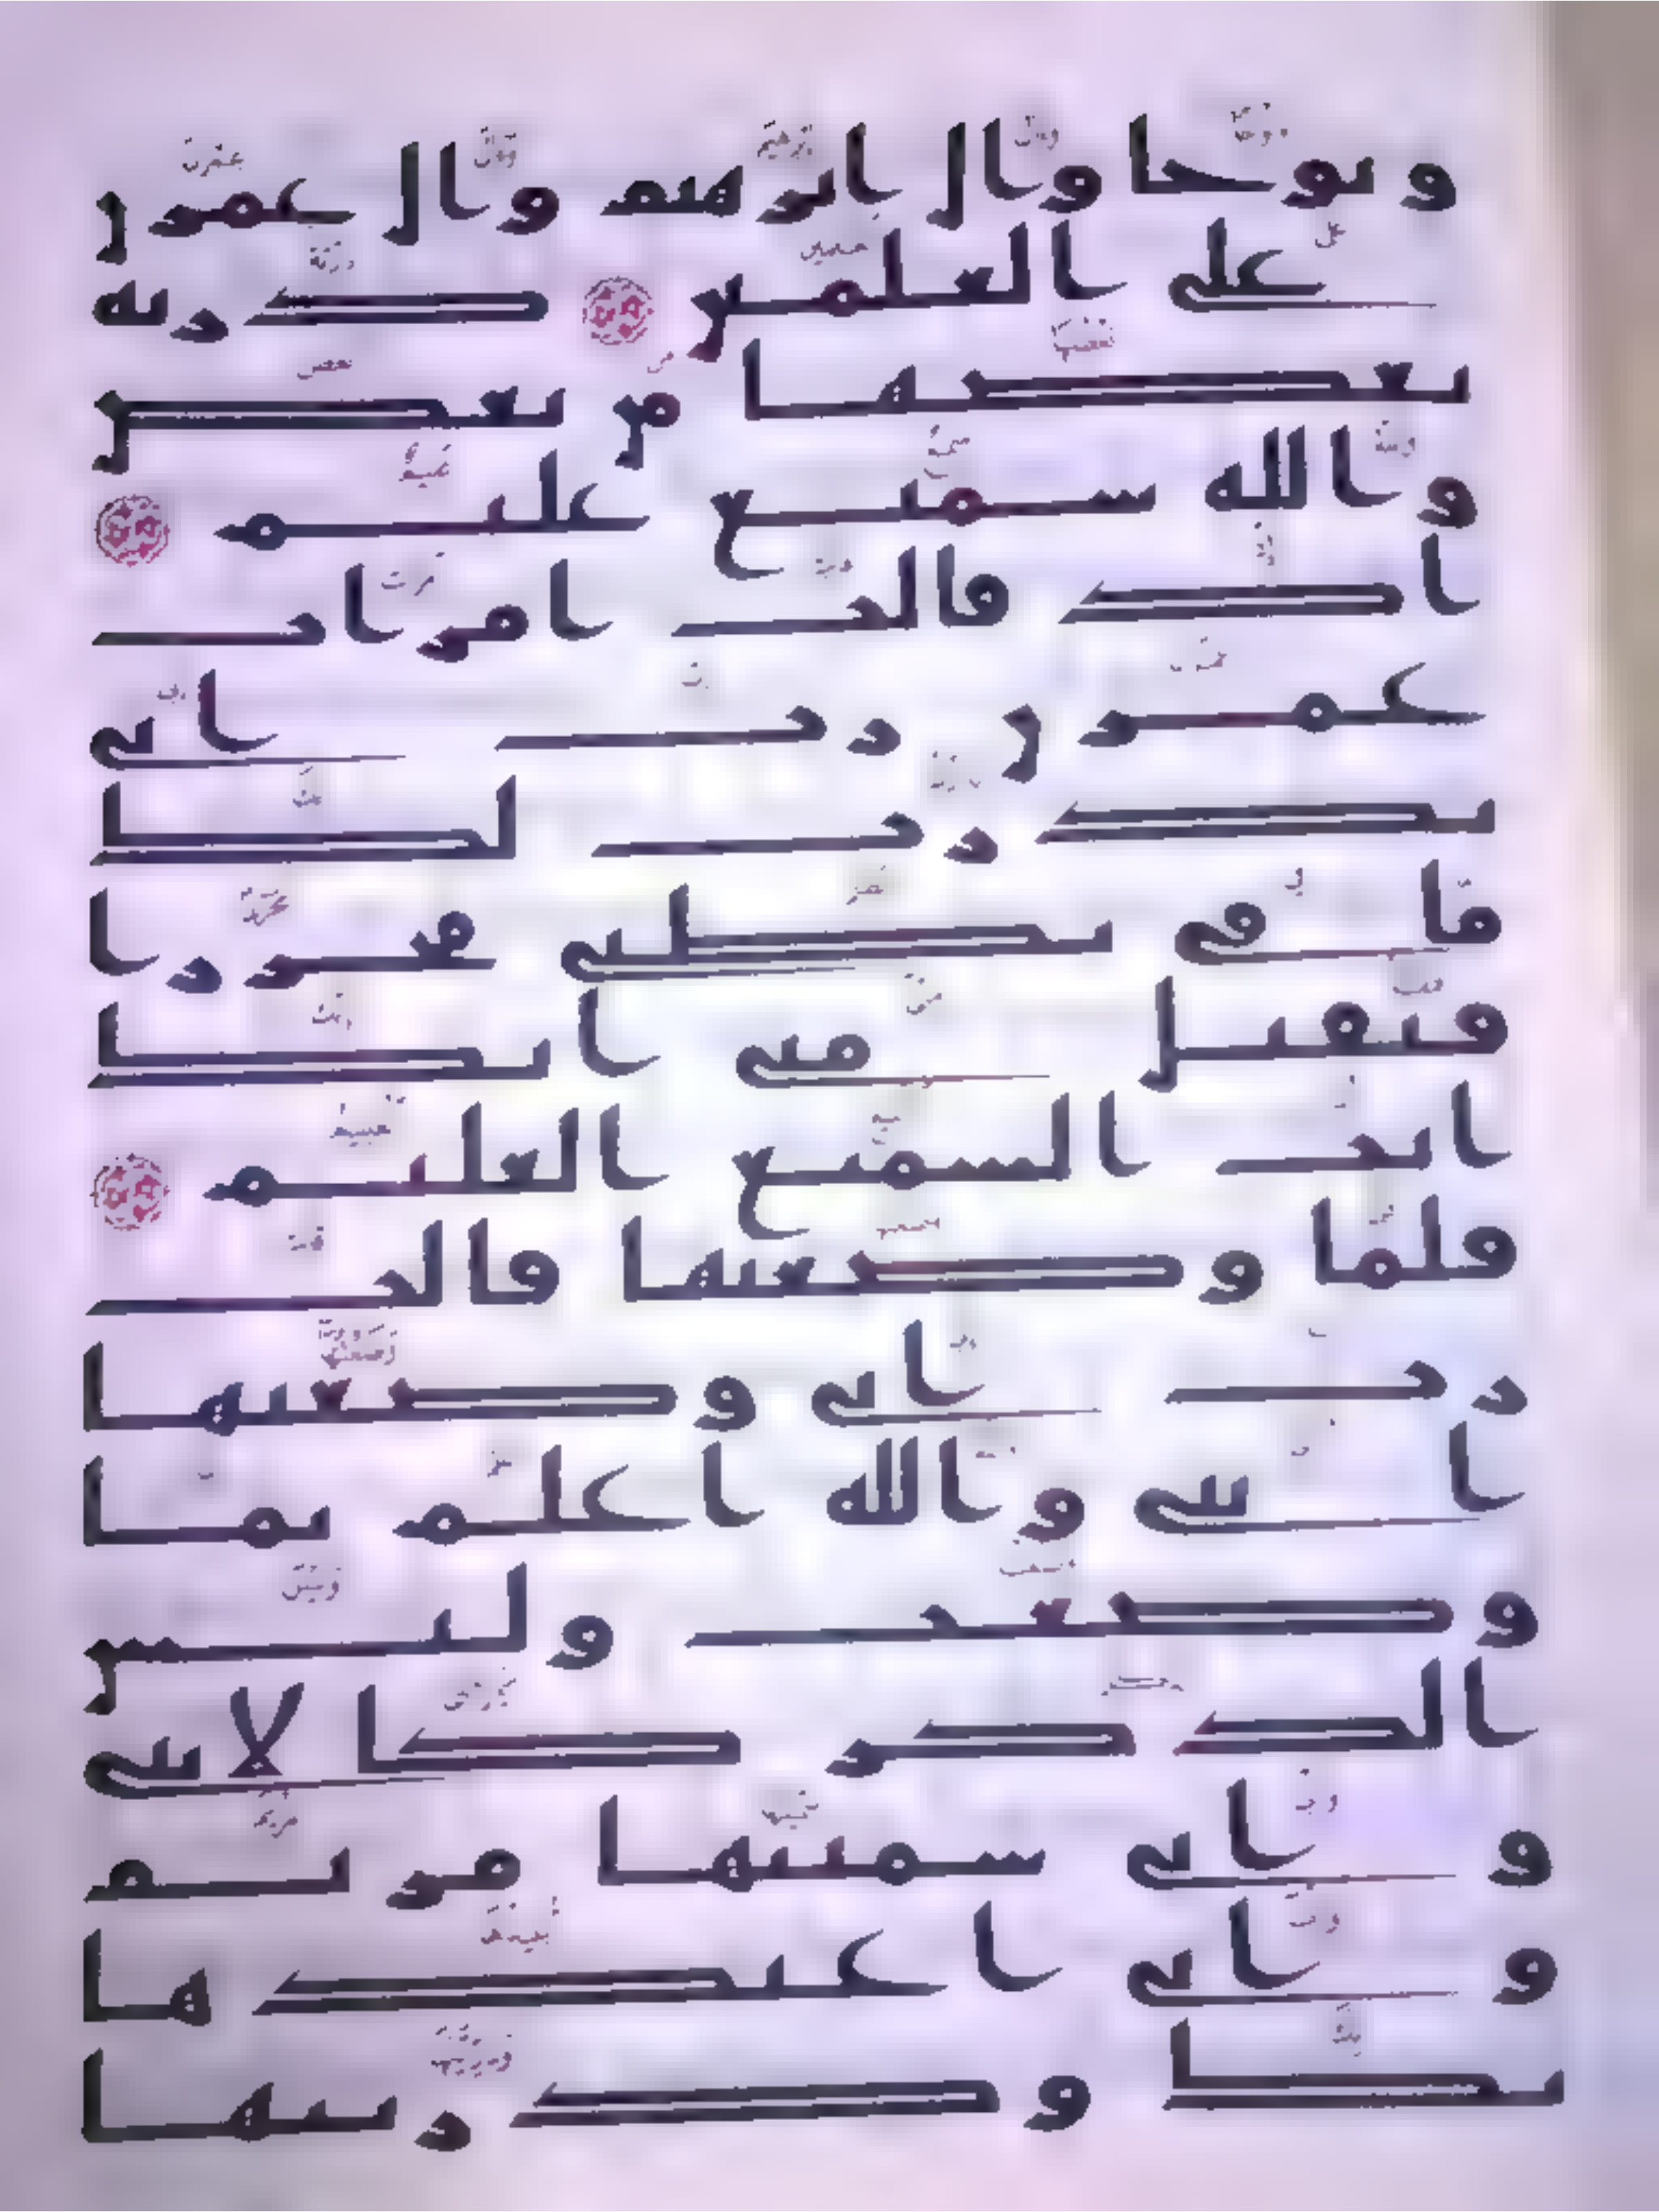 ونوحا وال ابرهيم وال عمرن
على العلمين ذرية
بعضها من بعض
والله سميع عليم
اذ قالت امرات
عمرن رب انى
نذرت لك
ما فى بطنى محررا
فتقبل منى انك
انت السميع العليم
فلما وضعتها قالت
رب انى وضعتها
انثى والله اعلم بما
وضعت وليس
الذكر كالانثى
وانى سميتها مريم
وانى اعيذها
بك وذريتها